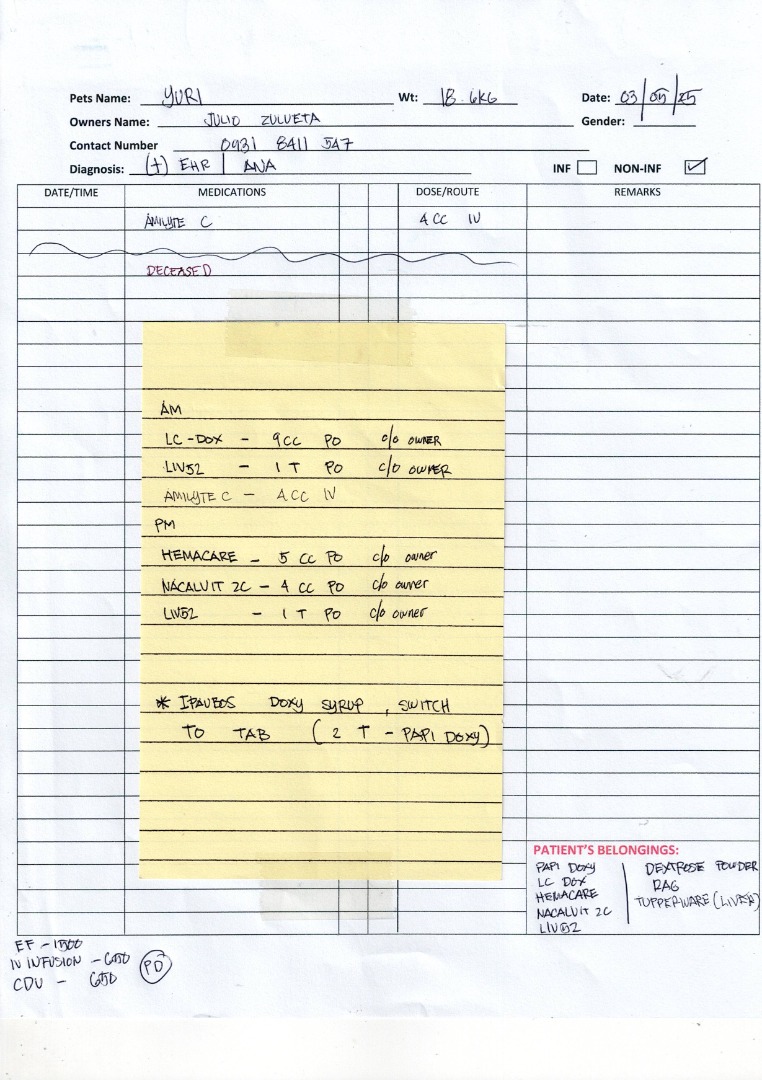 Pets Name: YURI Wt: 18.6KG Date: 03/05/25
Owners Name: JULIO ZULUETA Gender:
Contact Number 0931 8411 547
Diagnosis: (+) EHR | ANA INF NON-INF ✓
DATE/TIME MEDICATIONS DOSE/ROUTE REMARKS
AMILYTE C 4 CC IV
DECEASED
AM
LC-DOX - 9CC PO c/o OWNER
LIV52 - 1 T PO c/o OWNER
AMILYTE C - 4CC IV
PM
HEMACARE - 5 CC PO c/o owner
NACALVIT 2C - 4 CC PO c/o owner
LIV52 - 1 T PO c/o owner
* IPAUBOS DOXY SYRUP, SWITCH
TO TAB (2 T - PAPI DOXY)
PATIENT'S BELONGINGS:
PAPI DOXY
LC DOX
HEMACARE
NACALVIT 2C
LIV52
DEXTROSE POWDER
RAG
TUPPERWARE (LIV52)
EF - 1500
IV INFUSION - 650
CDU - 650
PD